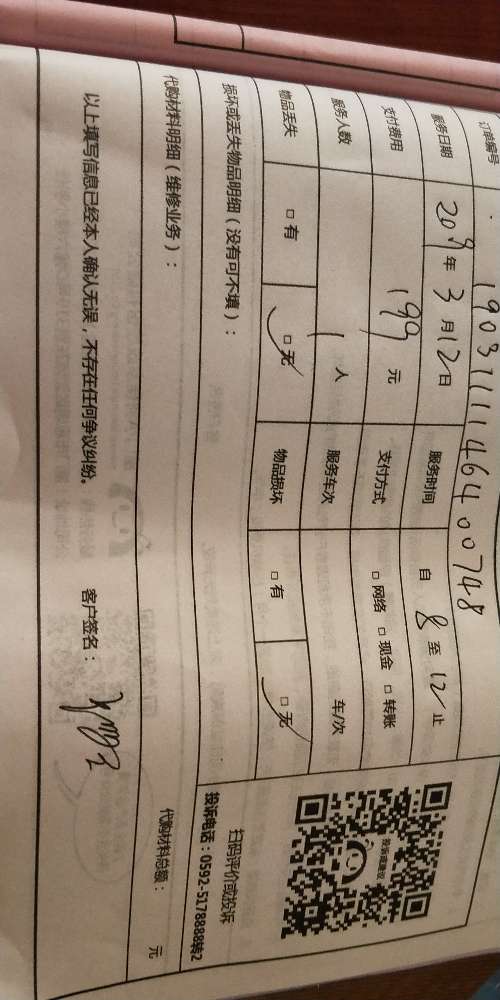 订单编号 1903111146400748
服务日期 2019年3月12日 服务时间 自 8 至 12 止
支付费用 199 元 支付方式 □ 网络 □ 现金 □ 转账
服务人数 1 人 服务车次 车/次
物品丢失 □ 有 □ 无 物品损坏 □ 有 □ 无
投诉或建议
扫码评价或投诉
投诉电话：0592-5178888转2
损坏或丢失物品明细（没有可不填）：
代购材料明细（维修业务）： 代购材料总额： 元
以上填写信息已经本人确认无误，不存在任何争议纠纷。 客户签名：